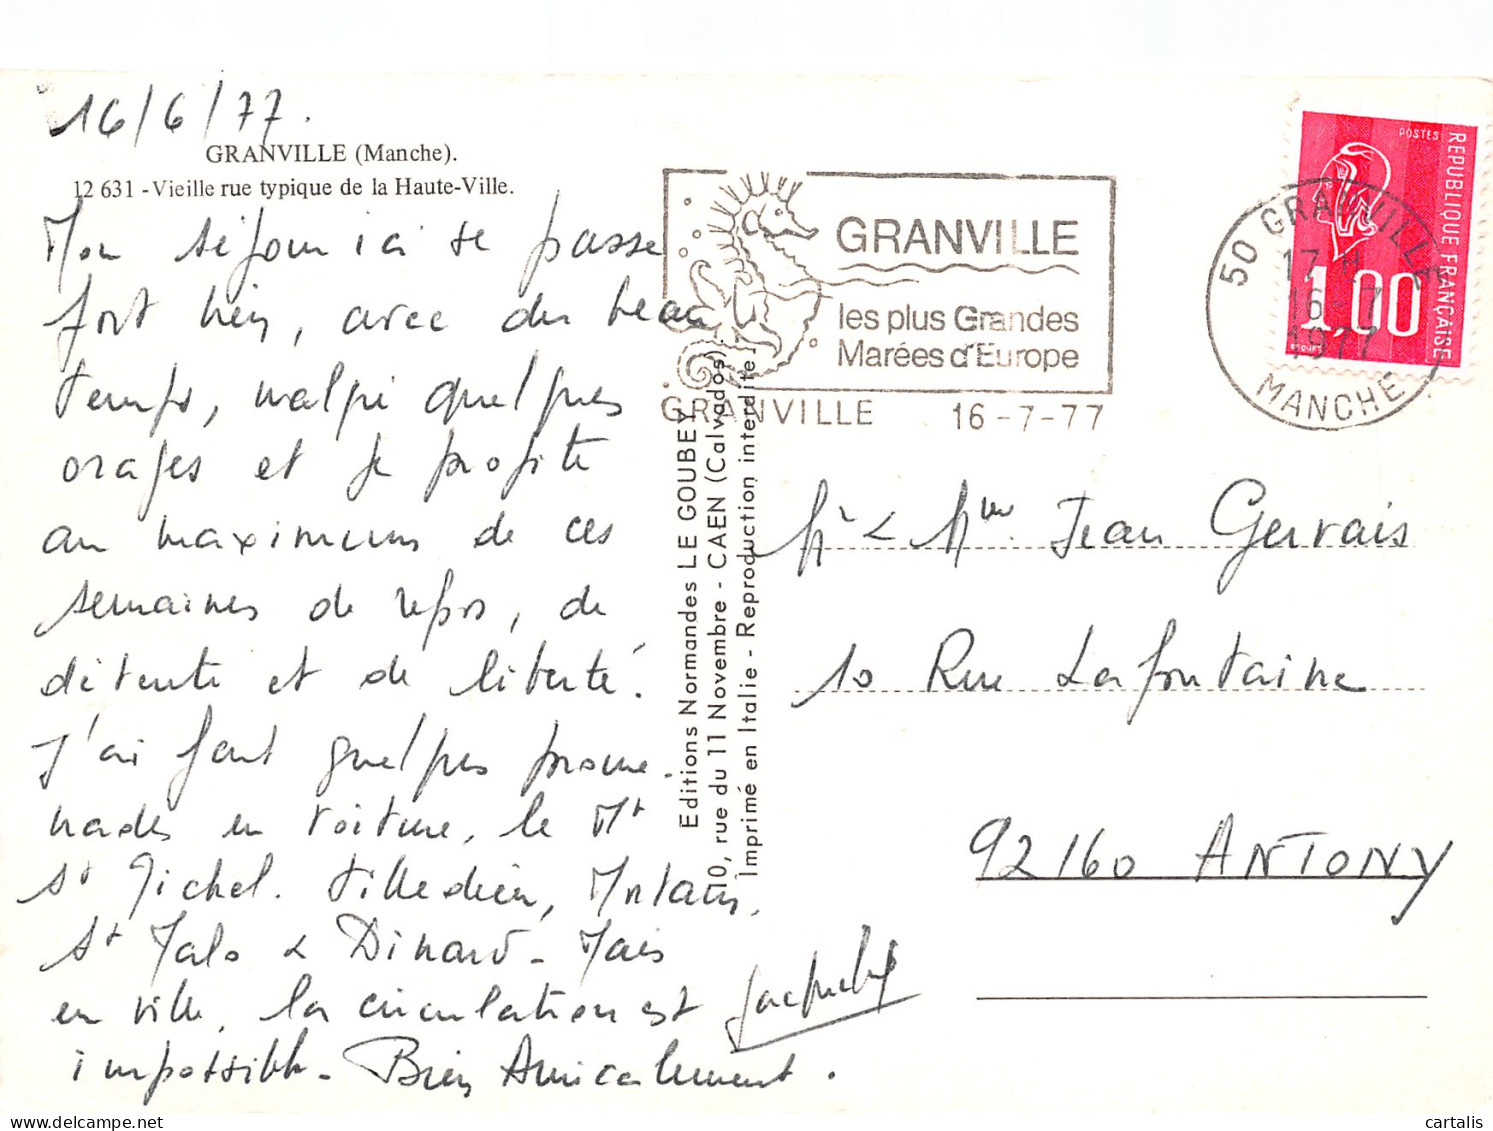 16/6/77.
GRANVILLE (Manche).
12 631 - Vieille rue typique de la Haute-Ville.
Mon séjour ici se passe
fort bien, avec du beau
temps, malgré quelques
orages et je profite
au maximum de ces
semaines de repos, de
détente et de liberté.
J'ai fait quelques prome-
nades en voiture, le Mt
St Michel. Villedieu, Mortain,
St Malo & Dinard - Mais
en ville, la circulation est
impossible - Bien Amicalement.
Editions Normandes LE GOUBEY
10, rue du 11 Novembre - CAEN (Calvados).
Imprimé en Italie - Reproduction interdite.
GRANVILLE
les plus Grandes
Marées d'Europe
GRANVILLE 16-7-77
50 GRANVILLE
17 H
16-7
1977
MANCHE
POSTES
REPUBLIQUE FRANÇAISE
1,00
Mr & Mme Jean Gervais
10 Rue Lafontaine
92160 ANTONY
cartalis